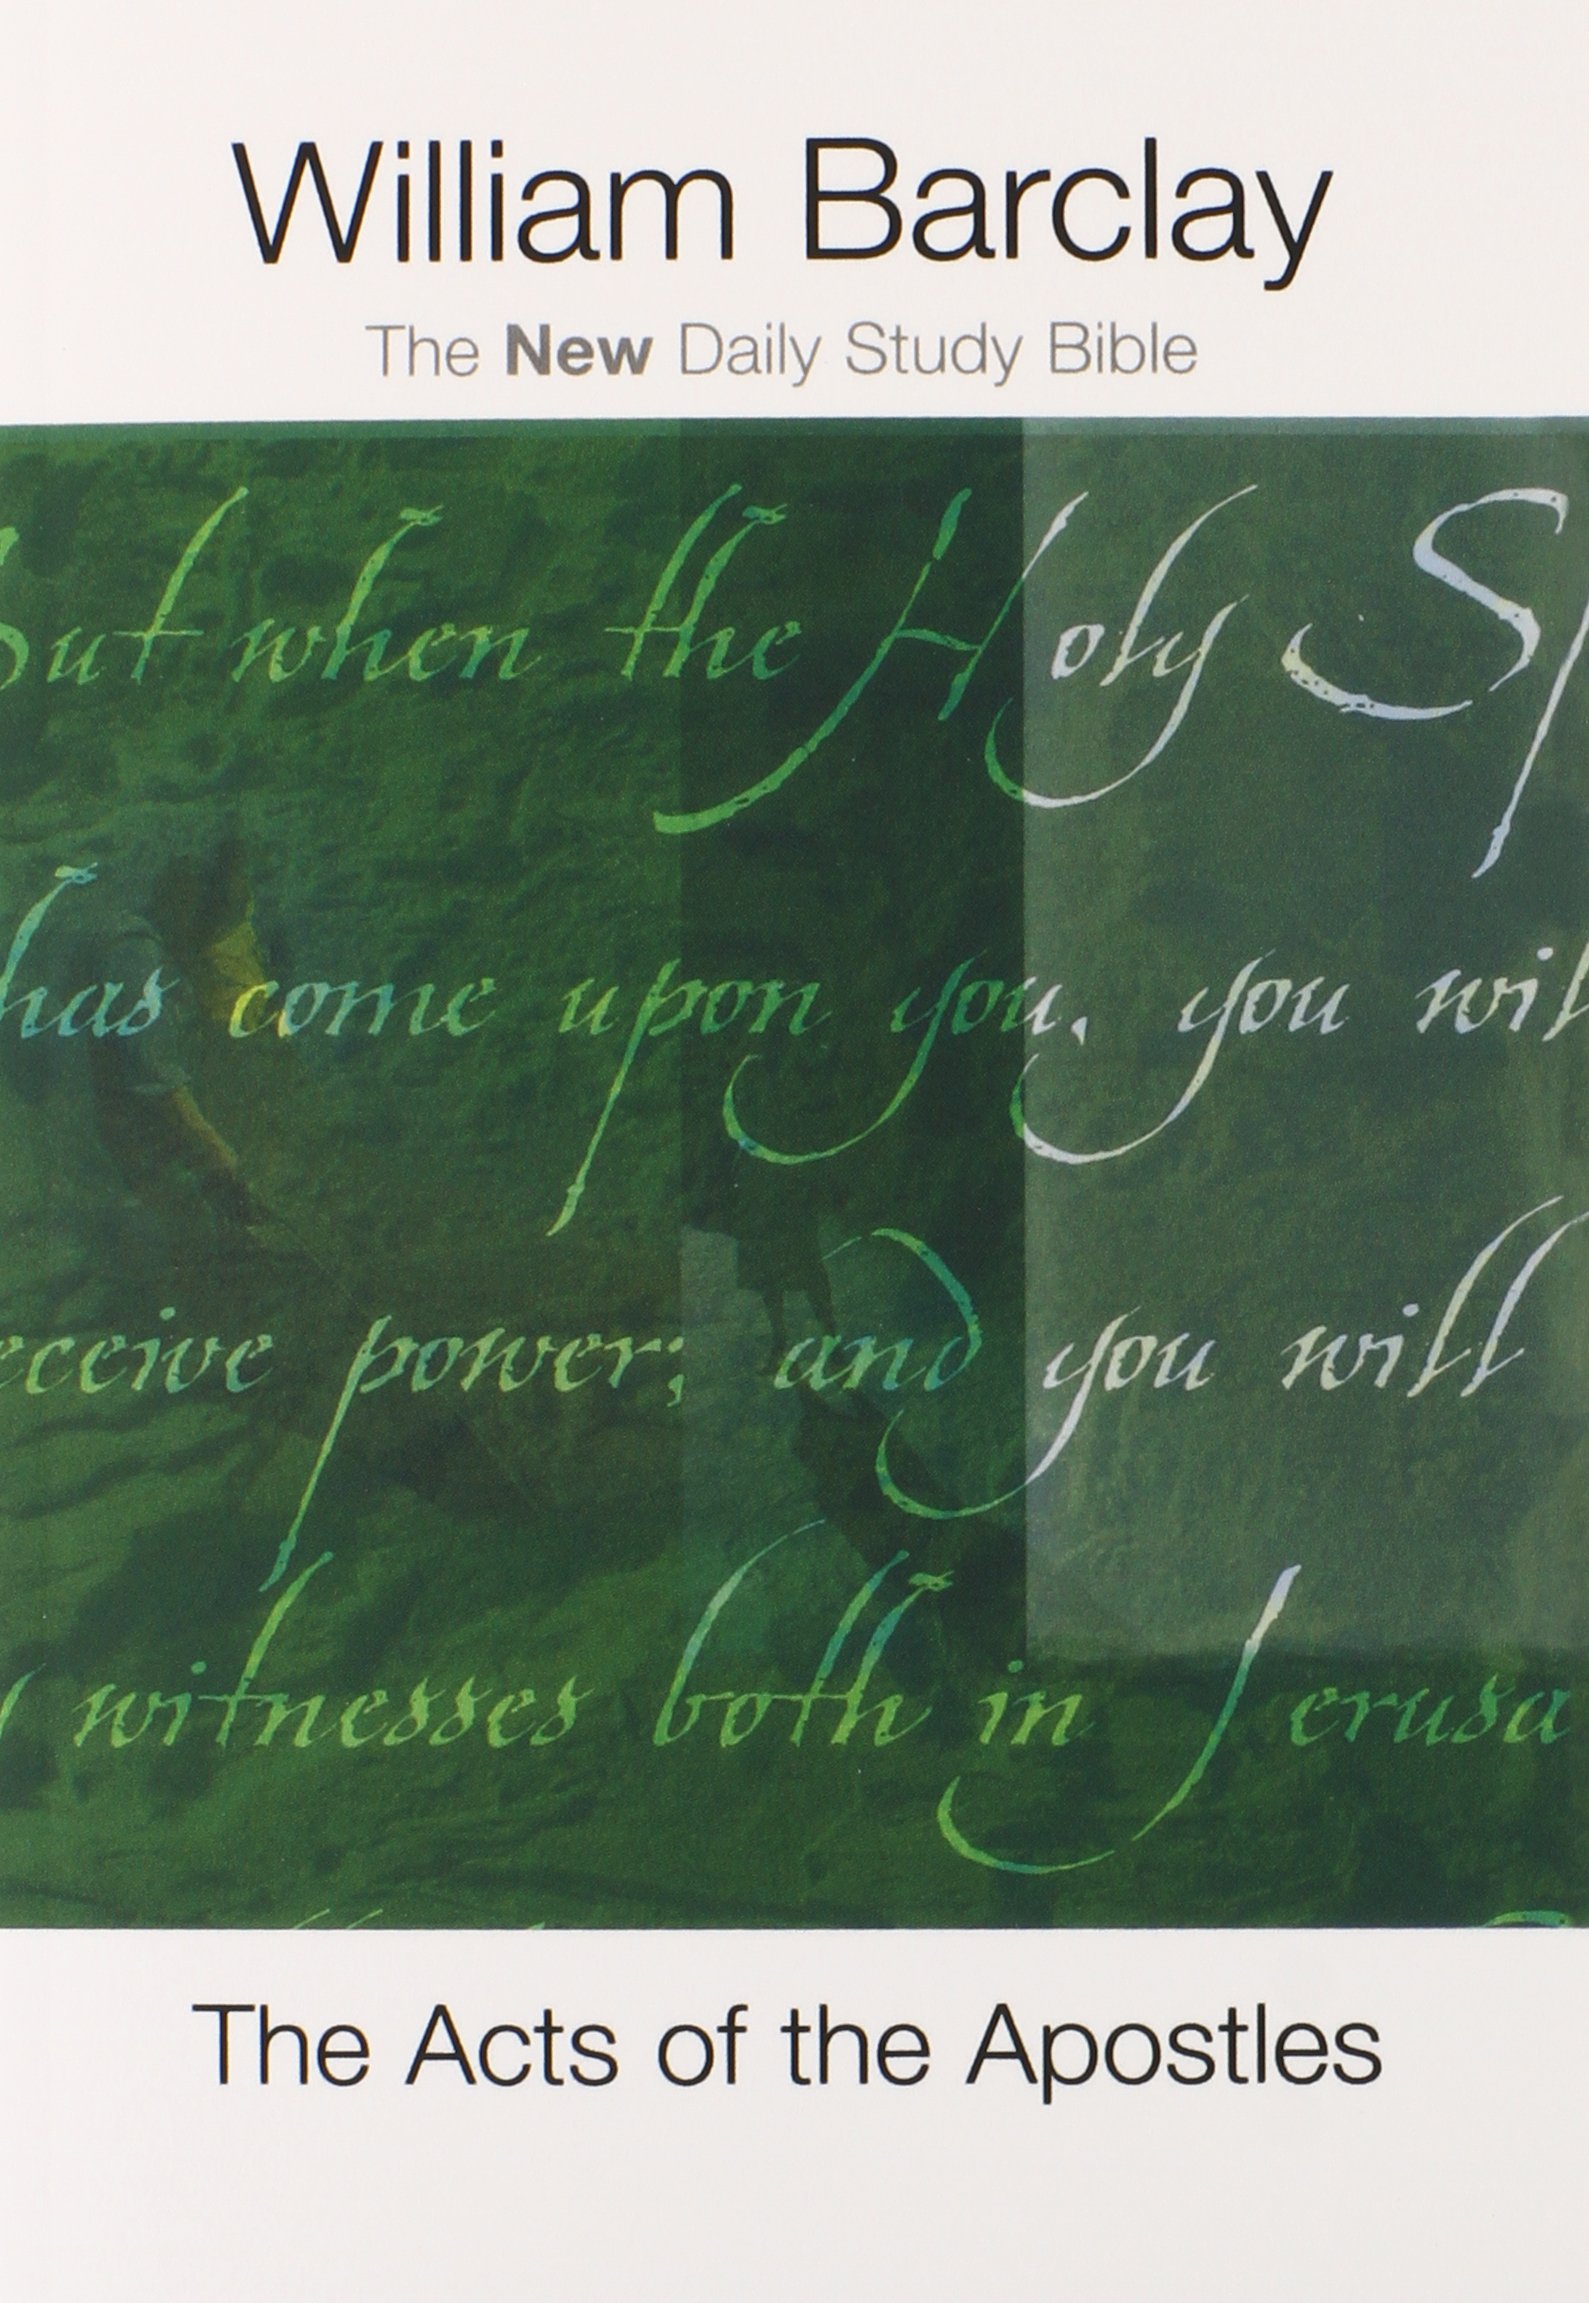 William Barclay
The New Daily Study Bible
But when the Holy Sp
has come upon you, you wil
eceive power; and you will
witnesses both in Jerusa
The Acts of the Apostles